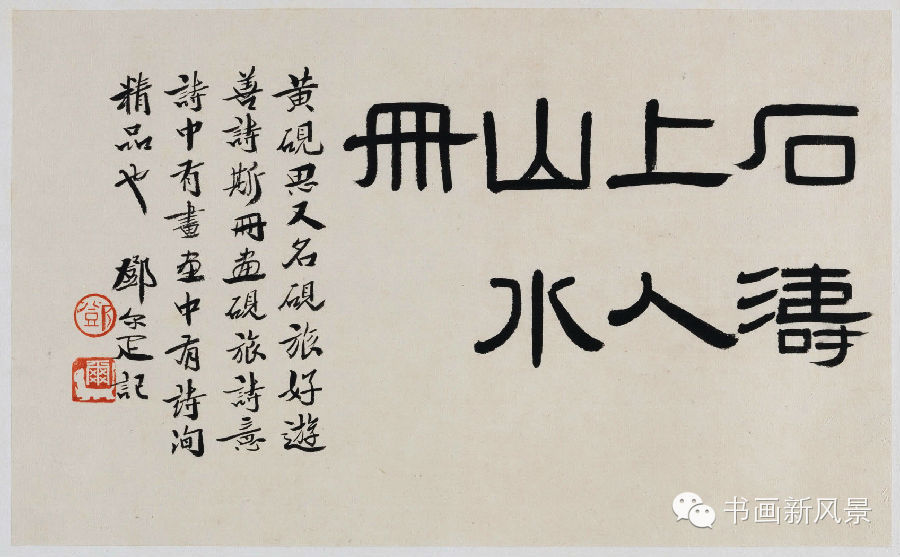 石濤
上人
山水
冊
黄硯思又名硯旅好遊
善詩斯冊画硯旅詩意
詩中有畫画中有詩洵
精品也 鄧尔疋記
鄧
爾
书画新风景